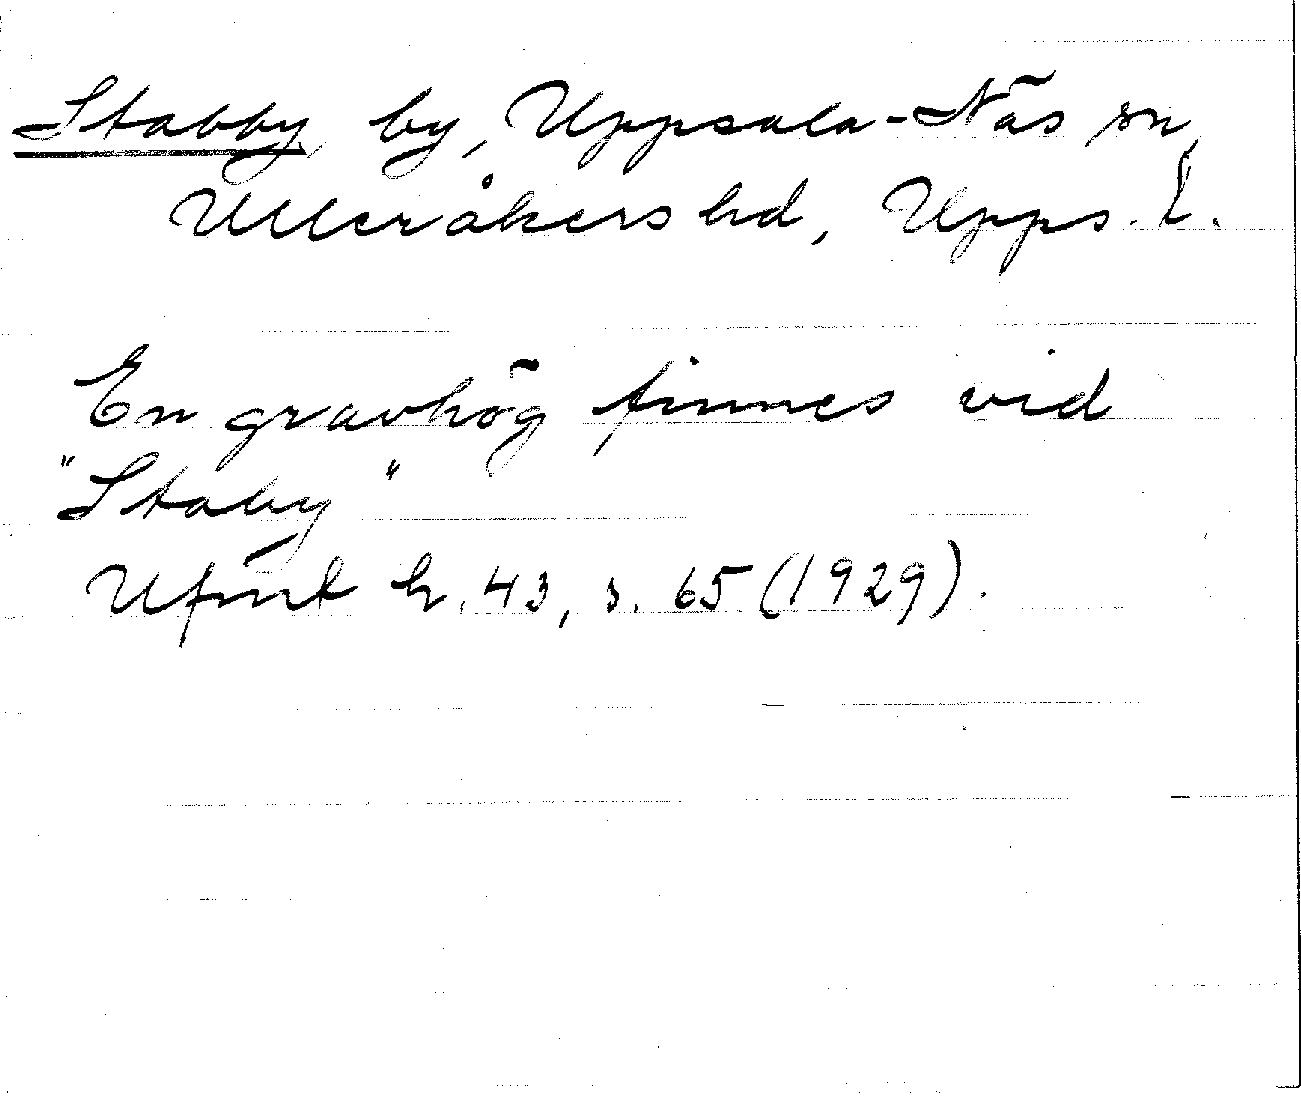 Stabby by, Uppsala-Näs sn,
Ulleråkers hd, Upps. l.
En gravhög finnes vid
"Staby"
Ufmt h. 43, s. 65 (1929).